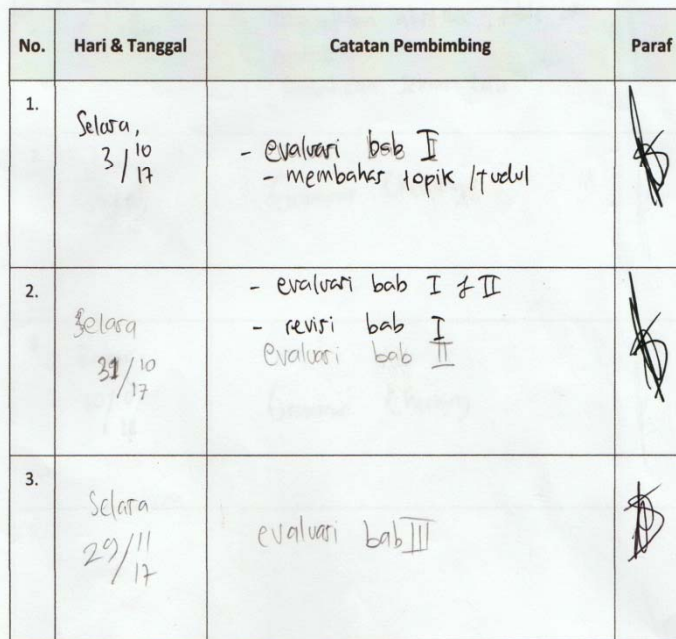 No. Hari & Tanggal Catatan Pembimbing Paraf
1.
Selasa,
3/10
17
- evaluasi bab II
- membahas topik /judul
2.
Selasa
31/10
17
- evaluasi bab I & II
- revisi bab I
evaluasi bab II
3.
Selasa
29/11
17
evaluasi bab III